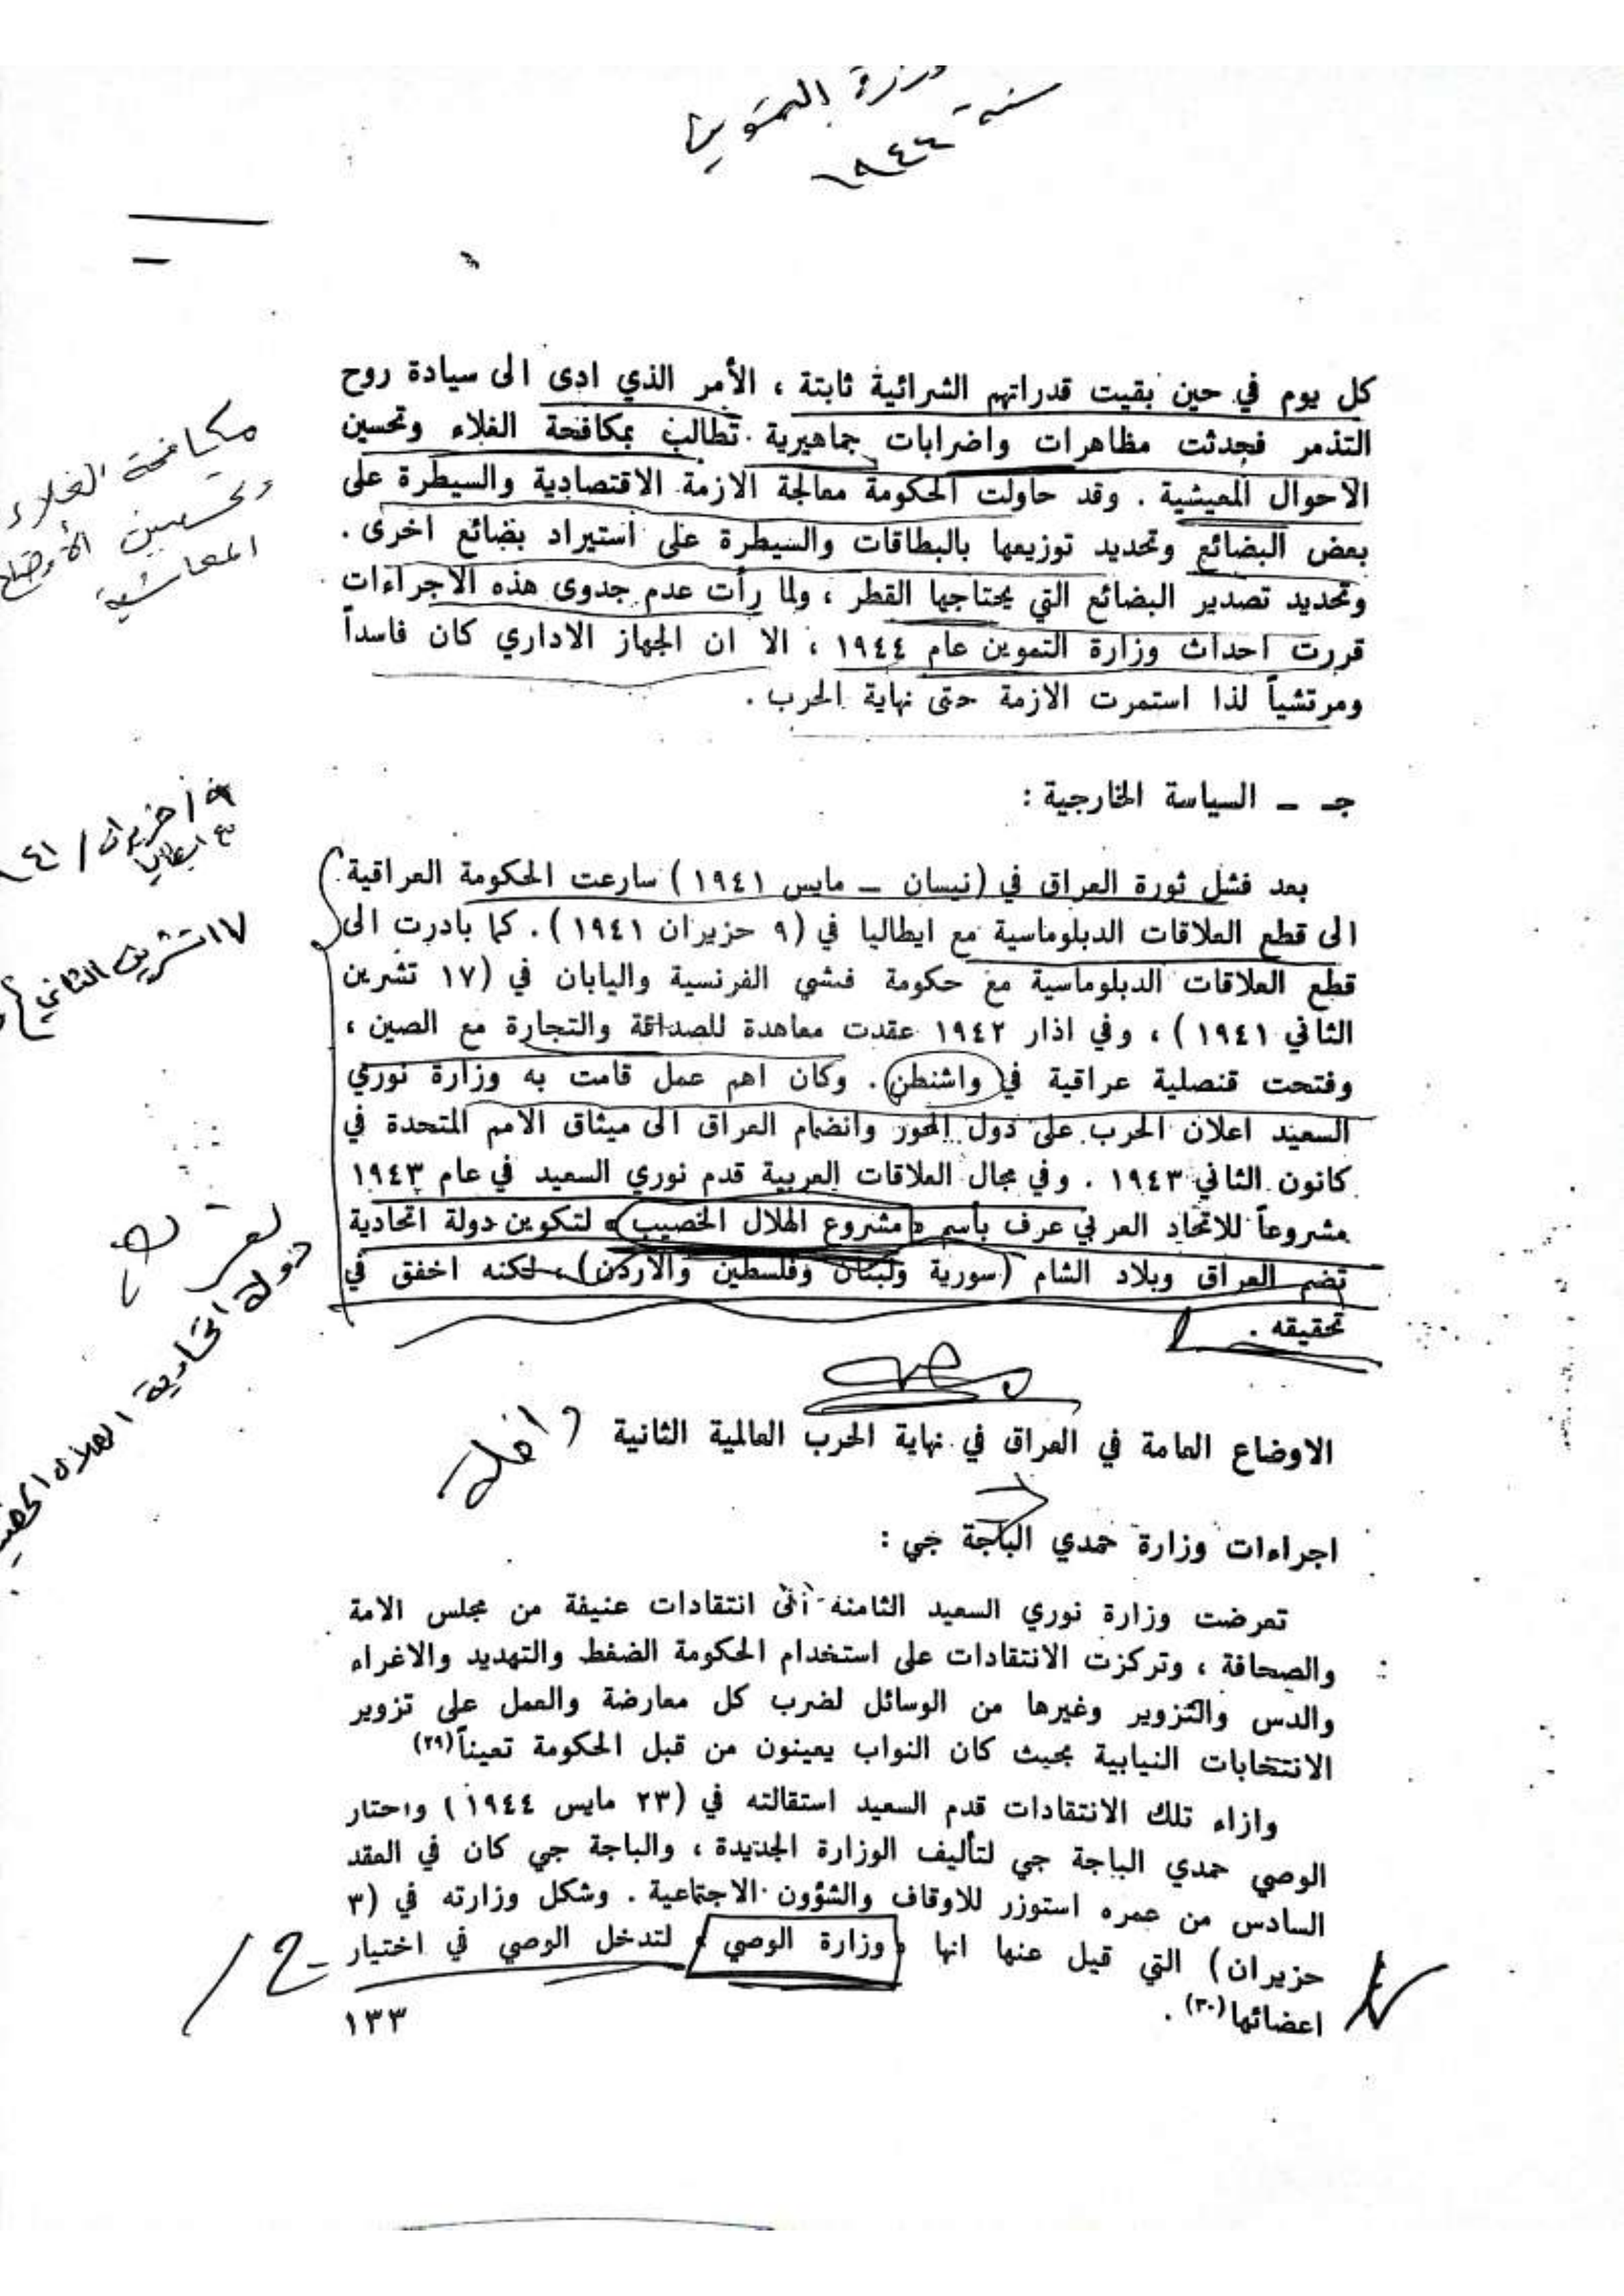 وزارة التموين
سنة ١٩٤٤
كل يوم في حين بقيت قدراتهم الشرائية ثابتة ، الأمر الذي ادى الى سيادة روح
التذمر فحدثت مظاهرات واضرابات جماهيرية تطالب بمكافحة الغلاء وتحسين
الاحوال المعيشية . وقد حاولت الحكومة معالجة الازمة الاقتصادية والسيطرة على
بعض البضائع وتحديد توزيعها بالبطاقات والسيطرة على استيراد بضائع اخرى .
وتحديد تصدير البضائع التي يحتاجها القطر ، ولما رأت عدم جدوى هذه الاجراءات
قررت احداث وزارة التموين عام ١٩٤٤ ، الا ان الجهاز الاداري كان فاسداً
ومرتشياً لذا استمرت الازمة حتى نهاية الحرب .
مكافحة الغلاء
وتحسين الأوضاع
المعاشية
جـ ـ السياسة الخارجية :
بعد فشل ثورة العراق في (نيسان ـ مايس ١٩٤١) سارعت الحكومة العراقية
الى قطع العلاقات الدبلوماسية مع ايطاليا في (٩ حزيران ١٩٤١) . كما بادرت الى
قطع العلاقات الدبلوماسية مع حكومة فشي الفرنسية واليابان في (١٧ تشرين
الثاني ١٩٤١) ، وفي اذار ١٩٤٢ عقدت معاهدة للصداقة والتجارة مع الصين ،
وفتحت قنصلية عراقية في واشنطن . وكان اهم عمل قامت به وزارة نوري
السعيد اعلان الحرب على دول المحور وانضمام العراق الى ميثاق الامم المتحدة في
كانون الثاني ١٩٤٣ . وفي مجال العلاقات العربية قدم نوري السعيد في عام ١٩٤٣
مشروعاً للاتحاد العربي عرف بأسم « مشروع الهلال الخصيب » لتكوين دولة اتحادية
تضم العراق وبلاد الشام (سورية ولبنان وفلسطين والاردن) ، لكنه اخفق في
تحقيقه .
٩ / حزيران / ٤١
مع ايطاليا
١٧ تشرين الثاني
دولة اتحادية الهلال الخصيب
الاوضاع العامة في العراق في نهاية الحرب العالمية الثانية
داخلة
اجراءات وزارة حمدي الباجة جي :
تعرضت وزارة نوري السعيد الثامنة الى انتقادات عنيفة من مجلس الامة
والصحافة ، وتركزت الانتقادات على استخدام الحكومة الضغط والتهديد والاغراء
والدس والتزوير وغيرها من الوسائل لضرب كل معارضة والعمل على تزوير
الانتتخابات النيابية بحيث كان النواب يعينون من قبل الحكومة تعيناً(٢٩)
وازاء تلك الانتقادات قدم السعيد استقالته في (٢٣ مايس ١٩٤٤) واختار
الوصي حمدي الباجة جي لتأليف الوزارة الجديدة ، والباجة جي كان في العقد
السادس من عمره استوزر للاوقاف والشؤون الاجتماعية . وشكل وزارته في (٣
حزيران) التي قيل عنها انها « وزارة الوصي » لتدخل الوصي في اختيار
اعضائها(٣٠) .
١٣٣